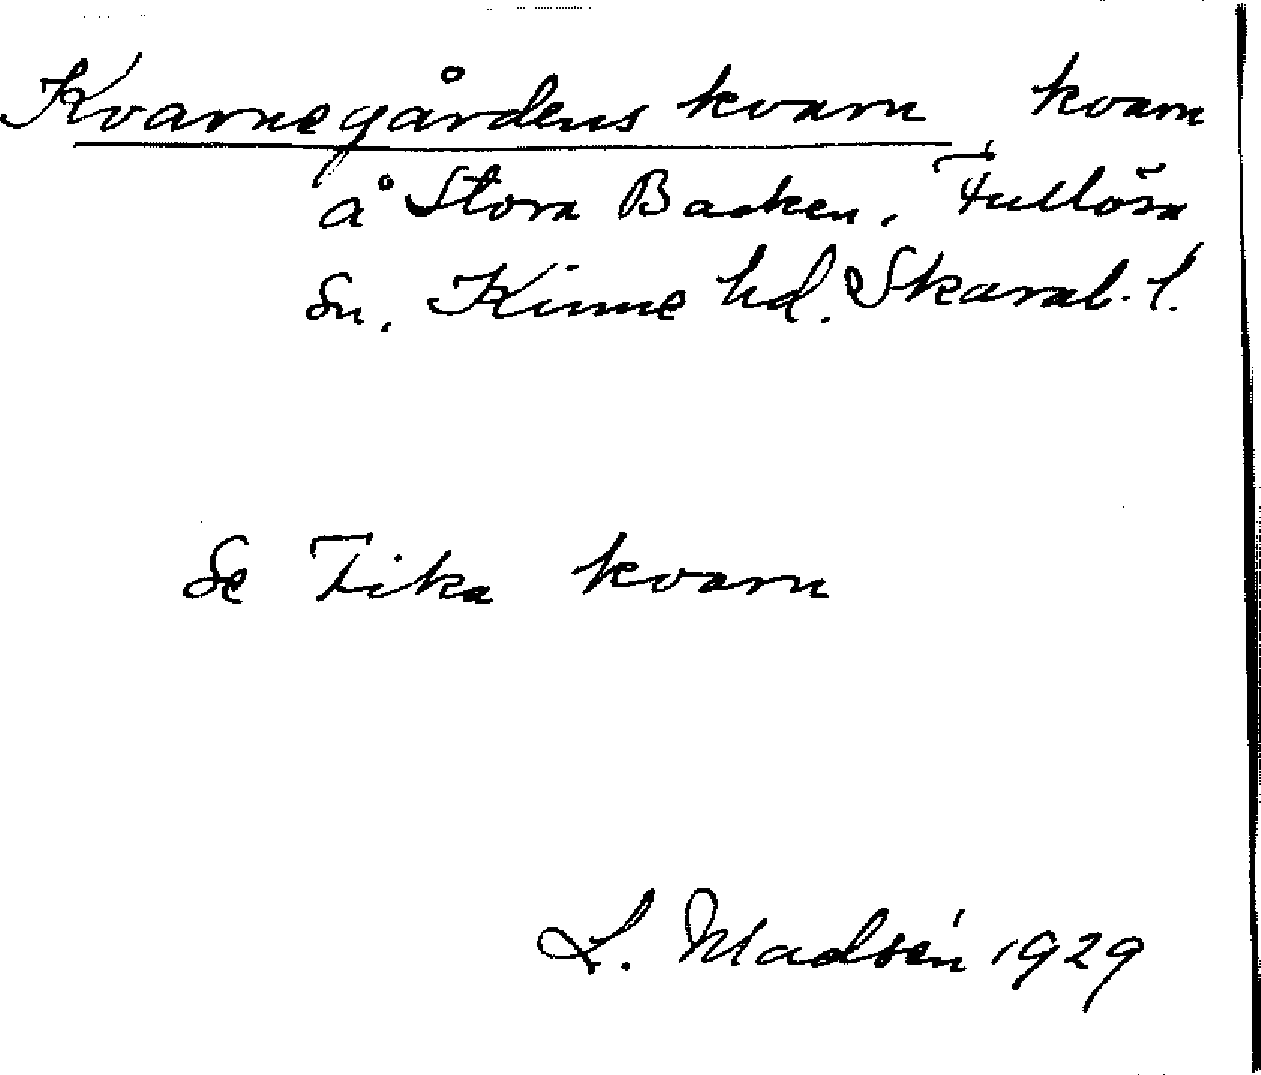 Kvarnegårdens kvarn kvarn
å Stora Backen, Fullösa
Sn. Kinne hd. Skarab. l.
Se Fika kvarn
L. Madsén 1929